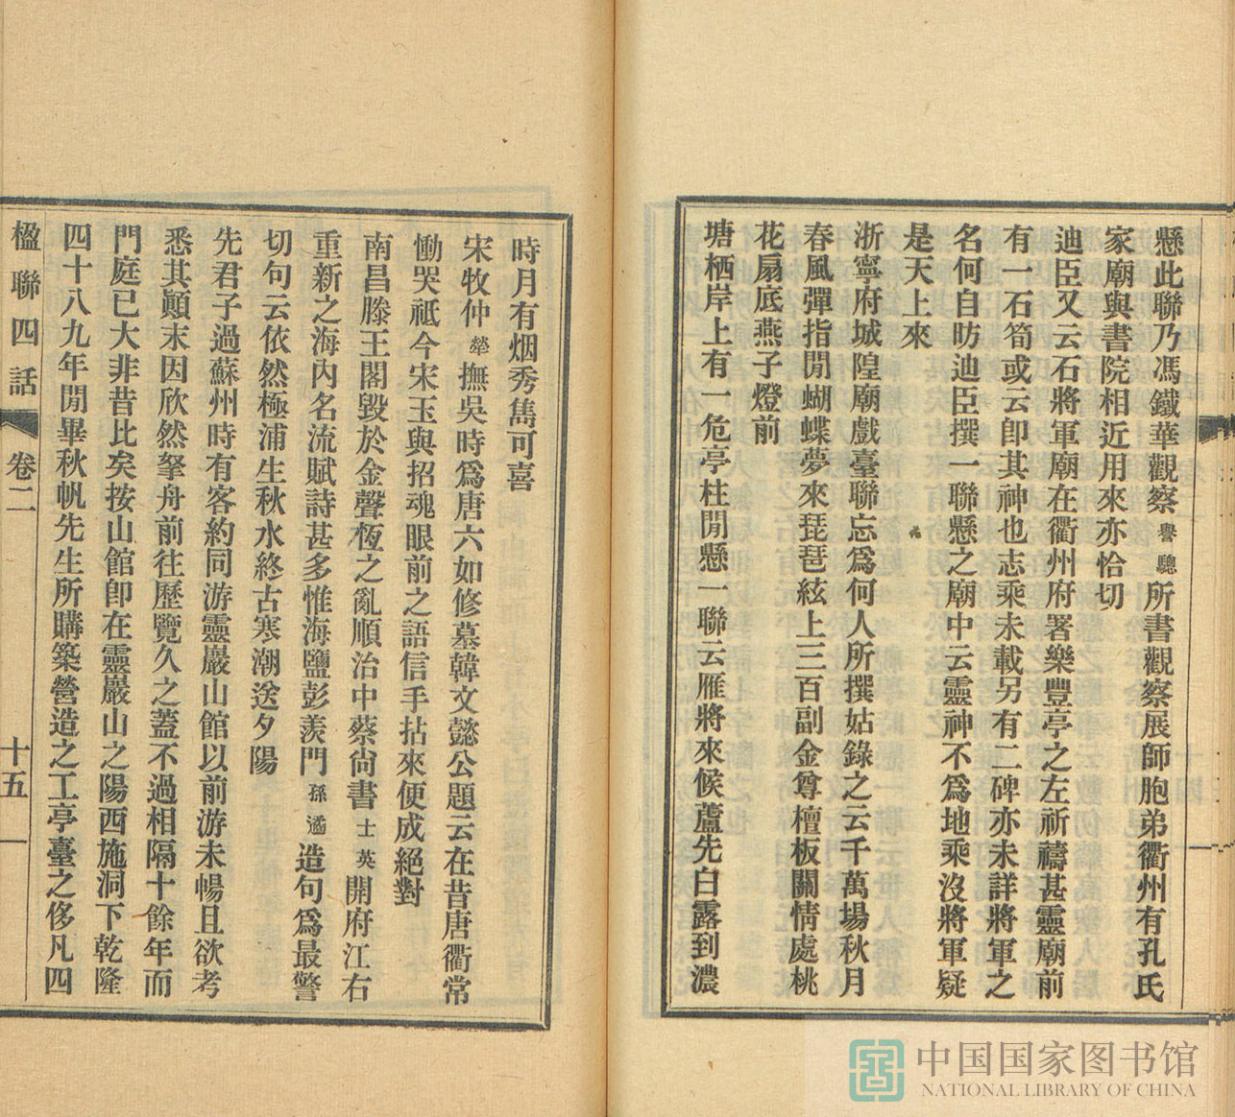 懸此聯乃馮鐵華觀察譽驄所書觀察展師胞弟衢州有孔氏
家廟與書院相近用來亦恰切
迪臣又云石將軍廟在衢州府署樂豐亭之左祈禱甚靈廟前
有一石筍或云卽其神也志乘未載另有二碑亦未詳將軍之
名何自昉迪臣撰一聯懸之廟中云靈神不爲地乘沒將軍疑
是天上來
浙寧府城隍廟戲臺聯忘爲何人所撰姑錄之云千萬場秋月
春風彈指閒蝴蝶夢來琵琶絃上三百副金尊檀板關情處桃
花扇底燕子燈前
塘栖岸上有一危亭柱閒懸一聯云雁將來候蘆先白露到濃
時月有烟秀雋可喜
宋牧仲犖撫吳時爲唐六如修墓韓文懿公題云在昔唐衢常
慟哭祗今宋玉與招魂眼前之語信手拈來便成絕對
南昌滕王閣毀於金聲恆之亂順治中蔡尙書士英開府江右
重新之海內名流賦詩甚多惟海鹽彭羨門孫遹造句爲最警
切句云依然極浦生秋水終古寒潮送夕陽
先君子過蘇州時有客約同游靈巖山館以前游未暢且欲考
悉其顚末因欣然拏舟前往歷覽久之蓋不過相隔十餘年而
門庭已大非昔比矣按山館卽在靈巖山之陽西施洞下乾隆
四十八九年閒畢秋帆先生所購築營造之工亭臺之侈凡四
楹聯四話 卷二 十五
中国国家图书馆
NATIONAL LIBRARY OF CHINA